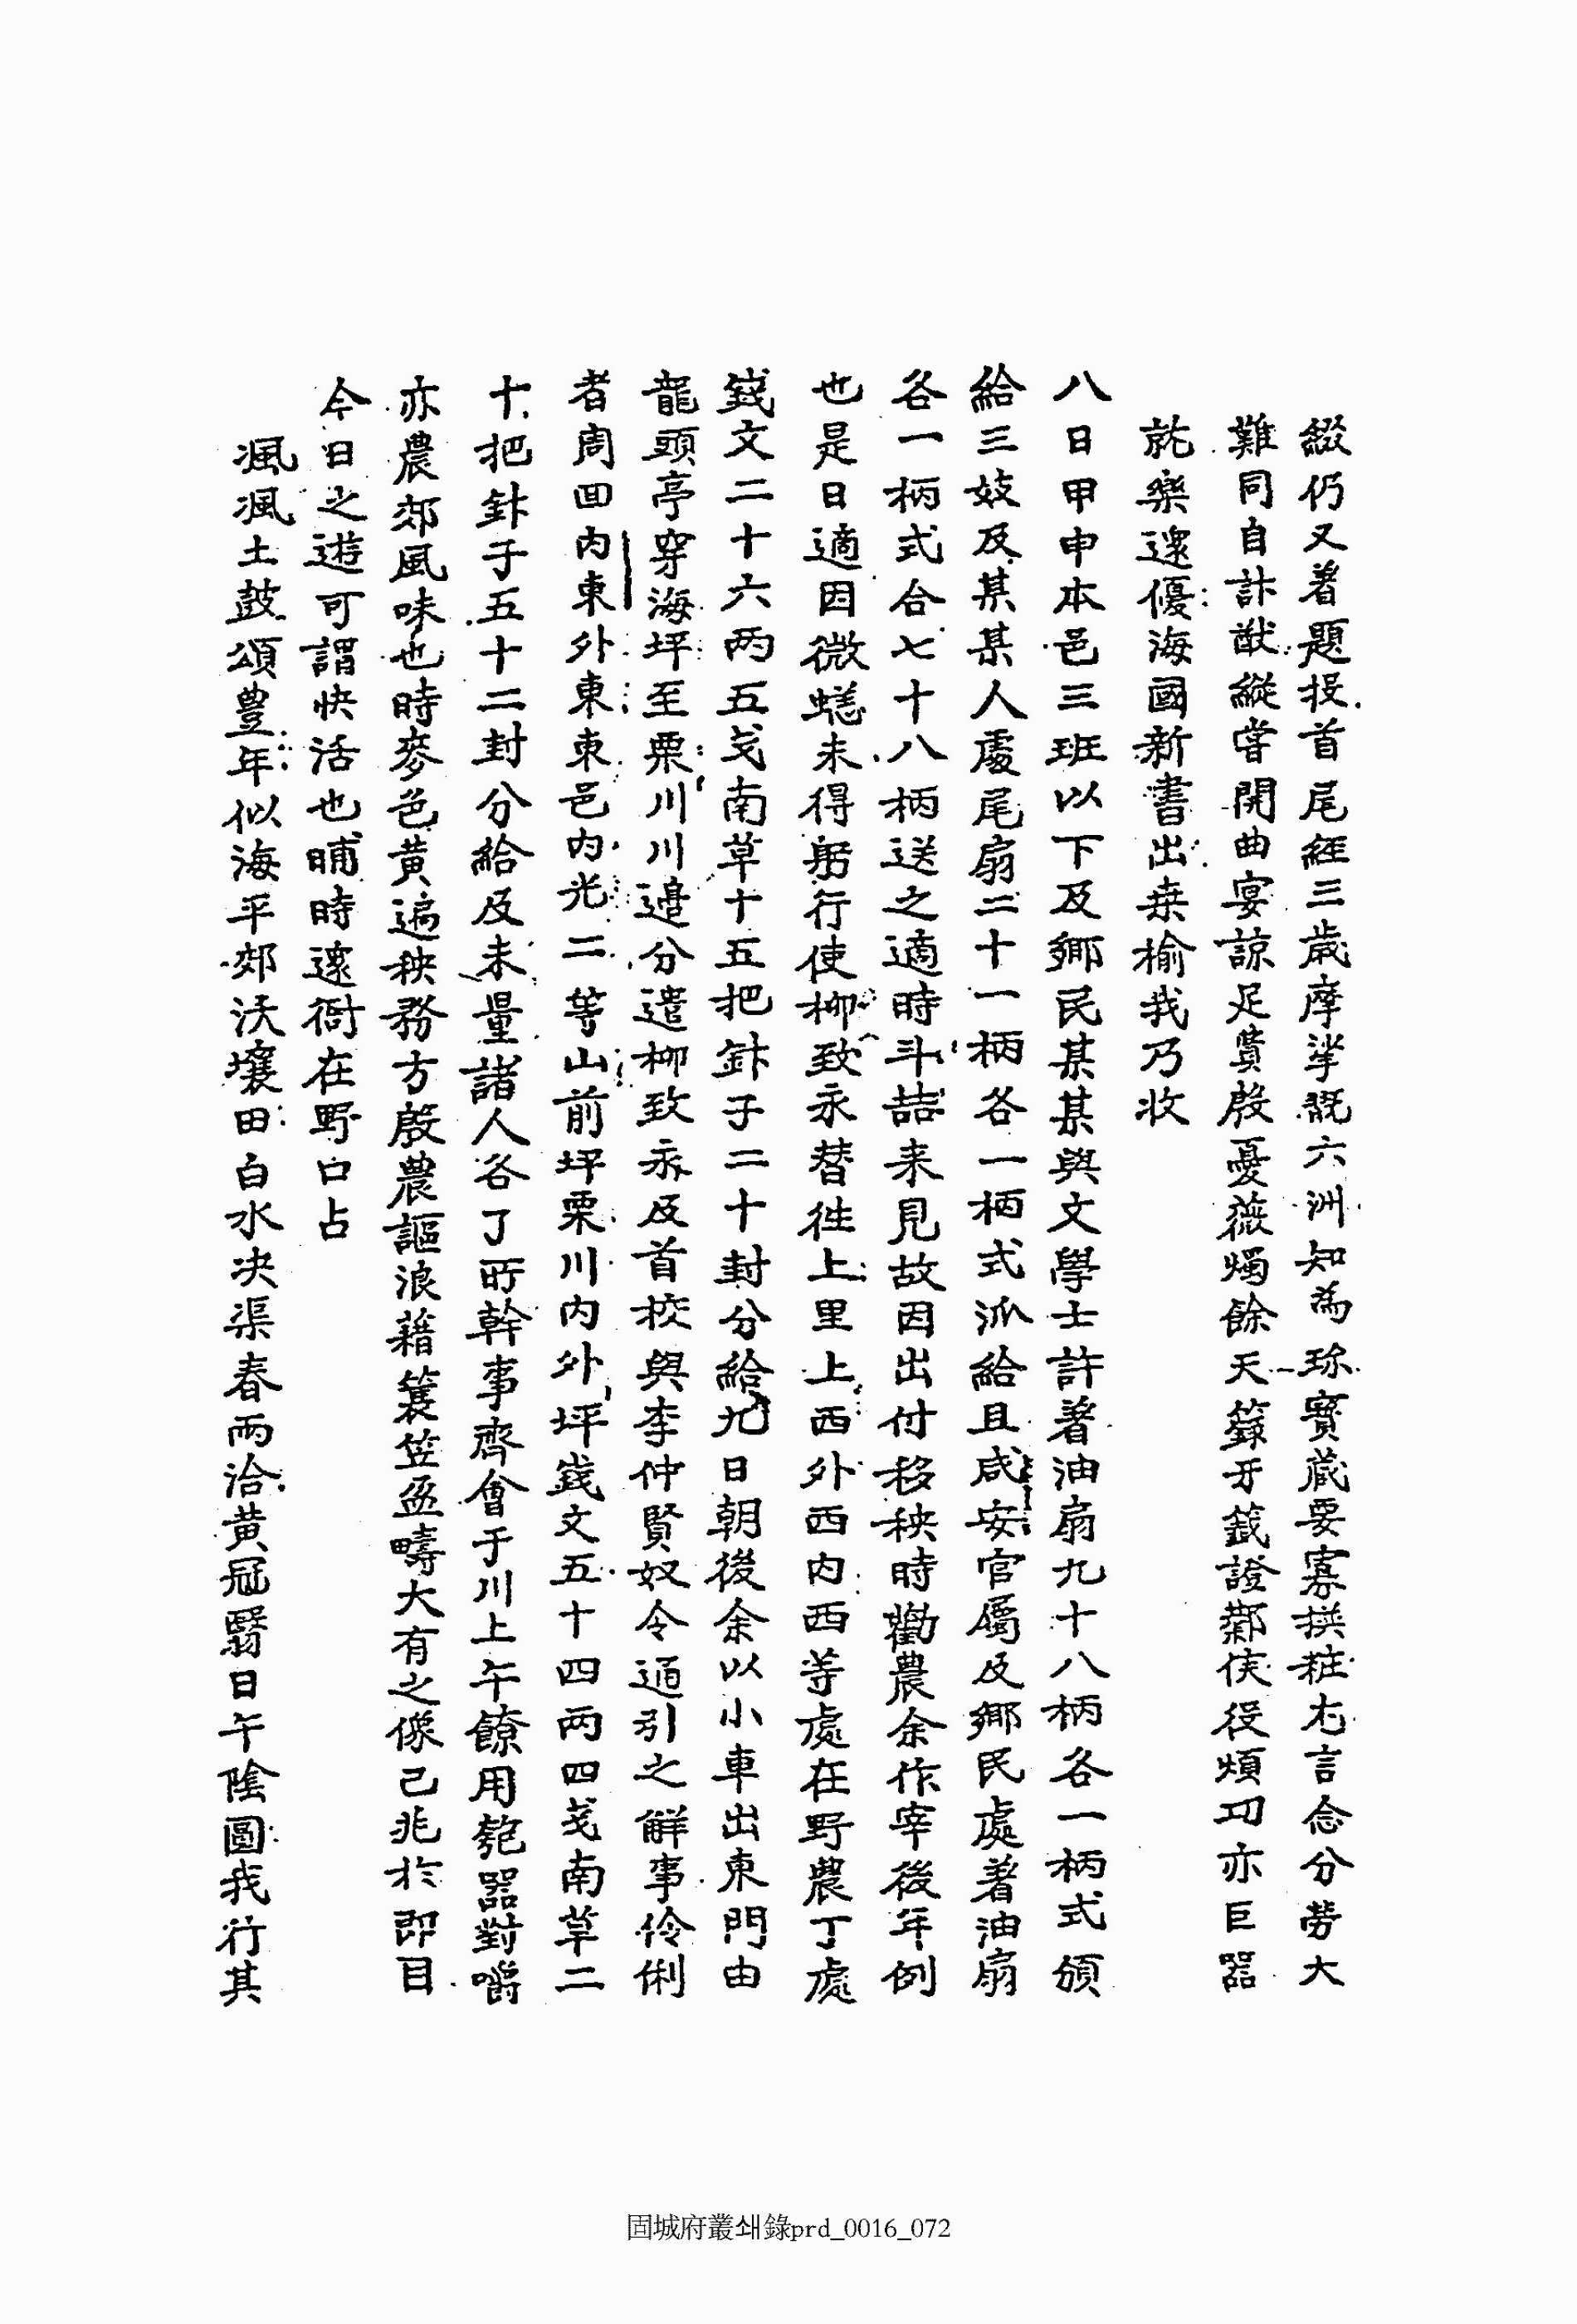 綴仍又著題投首尾經三歲摩挲說六洲知為珍寶藏要寡揆粧尤言念分勞大
難同自計猷縱嘗開曲宴諒足貰殷憂薇燭餘天籙牙籤證鄴侯役煩刃亦巨器
就樂還優海國新書出桑楡我乃收
八日甲申本邑三班以下及鄉民某某與文學士許着油扇九十八柄各一柄式頒
給三妓及某某人處尾扇二十一柄各一柄式派給且咸安官屬及鄉民處着油扇
各一柄式合七十八柄送之適時斗喆来見故因出付移秧時勸農余作宰後年例
也是日適因微蟋未得躬行使柳致永替徃上里上西外西内西等處在野農丁處
錢文二十六两五戔南草十五把針子二十封分給九日朝後余以小車出東門由
龍頭亭穿海坪至栗川川邊分遣柳致永及首校與李仲賢奴令通引之解事伶俐
者周回内東外東東邑内光二等山前坪栗川内外坪錢文五十四两四戔南草二
十把針子五十二封分給及未量諸人各了所幹事齊會于川上午饒用匏器對嚼
亦農郊風味也時麥色黃遍秧務方殷農謳浪藉簑笠盈疇大有之像已兆於即目
今日之遊可謂快活也晡時還衙在野口占
渢渢土鼓頌豊年似海平郊沃壤田白水决渠春雨洽黃冠翳日午陰圓我行其
固城府叢쇄錄prd_0016_072